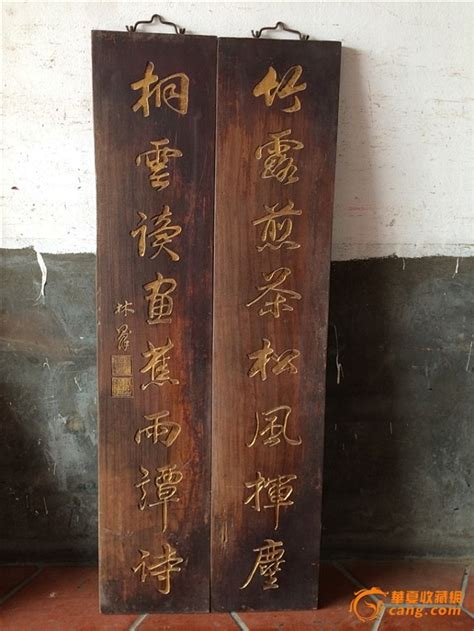 竹露煎茶松風揮塵
桐雲讀畫蕉雨譚詩
華夏收藏網
cang.com